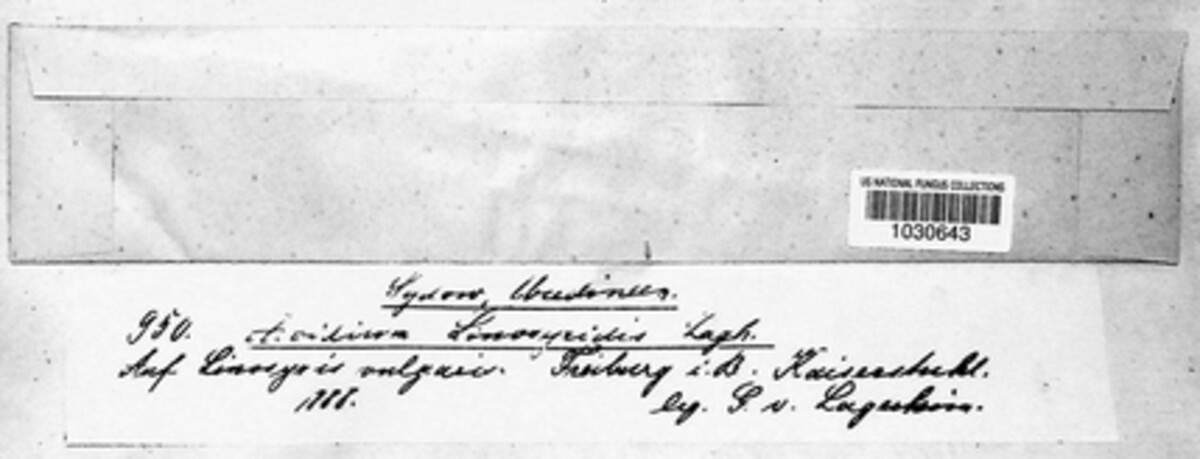 US NATIONAL FUNGUS COLLECTIONS
1030643
Sydow, Uredineen.
950. Aecidium Linosyridis Lagh.
Auf Linosyris vulgaris. Freiburg i. B. Kaiserstuhl.
1888. leg. G. v. Lagerheim.